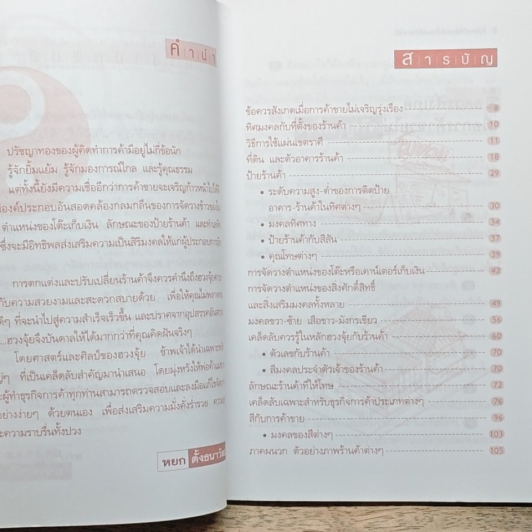 คำนำ
ปรัชญาทองของผู้คิดทำการค้ามีอยู่ไม่กี่ข้อนัก
รู้จักยิ้มแย้ม รู้จักมองการณ์ไกล และรู้คุณธรรม
แต่ทั้งนี้ยังมีความเชื่ออีกว่าการค้าขายจะเจริญก้าวหน้าไปได้
องค์ประกอบอันสอดคล้องกลมกลืนของการจัดวางร้าน
ตำแหน่งของโต๊ะเก็บเงิน ลักษณะของป้ายร้านค้า และ
ซึ่งจะมีอิทธิพลส่งเสริมความเป็นสิริมงคลให้แก่ผู้ประกอบการ
การตกแต่งและปรับเปลี่ยนร้านค้าจึงควรคำนึงถึงฮวงจุ้ย
กับความสวยงามและสะดวกสบายด้วย เพื่อให้คุณ
ที่จะนำไปสู่ความสำเร็จเร็วขึ้น และปราศจากอุปสรรค
...ฮวงจุ้ยจึงบันดาลให้ได้มากกว่าที่คุณคิดฝันจริงๆ
โดยศาสตร์และศิลป์ของฮวงจุ้ย ข้าพเจ้าได้นำเฉพาะ
ที่เป็นเคล็ดลับสำคัญมานำเสนอ โดยมุ่งหวังให้พ่อค้า
ผู้ทำธุรกิจการค้าทุกท่านสามารถตรวจสอบและลงมือแก้ไข
อย่างง่ายๆ ด้วยตนเอง เพื่อส่งเสริมความมั่งคั่งร่ำรวย
ความราบรื่นทั้งปวง
หยก ตั้งธนาวัฒน์
สารบัญ
ข้อควรสังเกตเมื่อการค้าขายไม่เจริญรุ่งเรือง 9
ทิศมงคลกับที่ตั้งของร้านค้า 10
วิธีการใช้แผ่นเขตราศี 11
ที่ดิน และตัวอาคารร้านค้า 18
ป้ายร้านค้า 29
• ระดับความสูง-ต่ำของการติดป้าย
อาคาร-ร้านค้าในทิศต่างๆ 30
• มงคลทิศทาง 34
• ป้ายร้านค้ากับสีสัน 37
• คุณโทษต่างๆ 39
การจัดวางตำแหน่งของโต๊ะหรือเคาน์เตอร์เก็บเงิน 42
การจัดวางตำแหน่งของสิ่งศักดิ์สิทธิ์
และสิ่งเสริมมงคลทั้งหลาย 49
มงคลขวา-ซ้าย เสือขาว-มังกรเขียว 56
เคล็ดลับควรรู้ในหลักฮวงจุ้ยกับร้านค้า 60
• ตัวเลขกับร้านค้า
• สีมงคลประจำตัวเจ้าของร้านค้า 70
ลักษณะร้านค้าที่ให้โทษ 72
เคล็ดลับเฉพาะสำหรับธุรกิจการค้าประเภทต่างๆ 76
สีกับการค้าขาย
• มงคลของสีต่างๆ 103
ภาคผนวก ตัวอย่างภาพร้านค้าต่างๆ 105